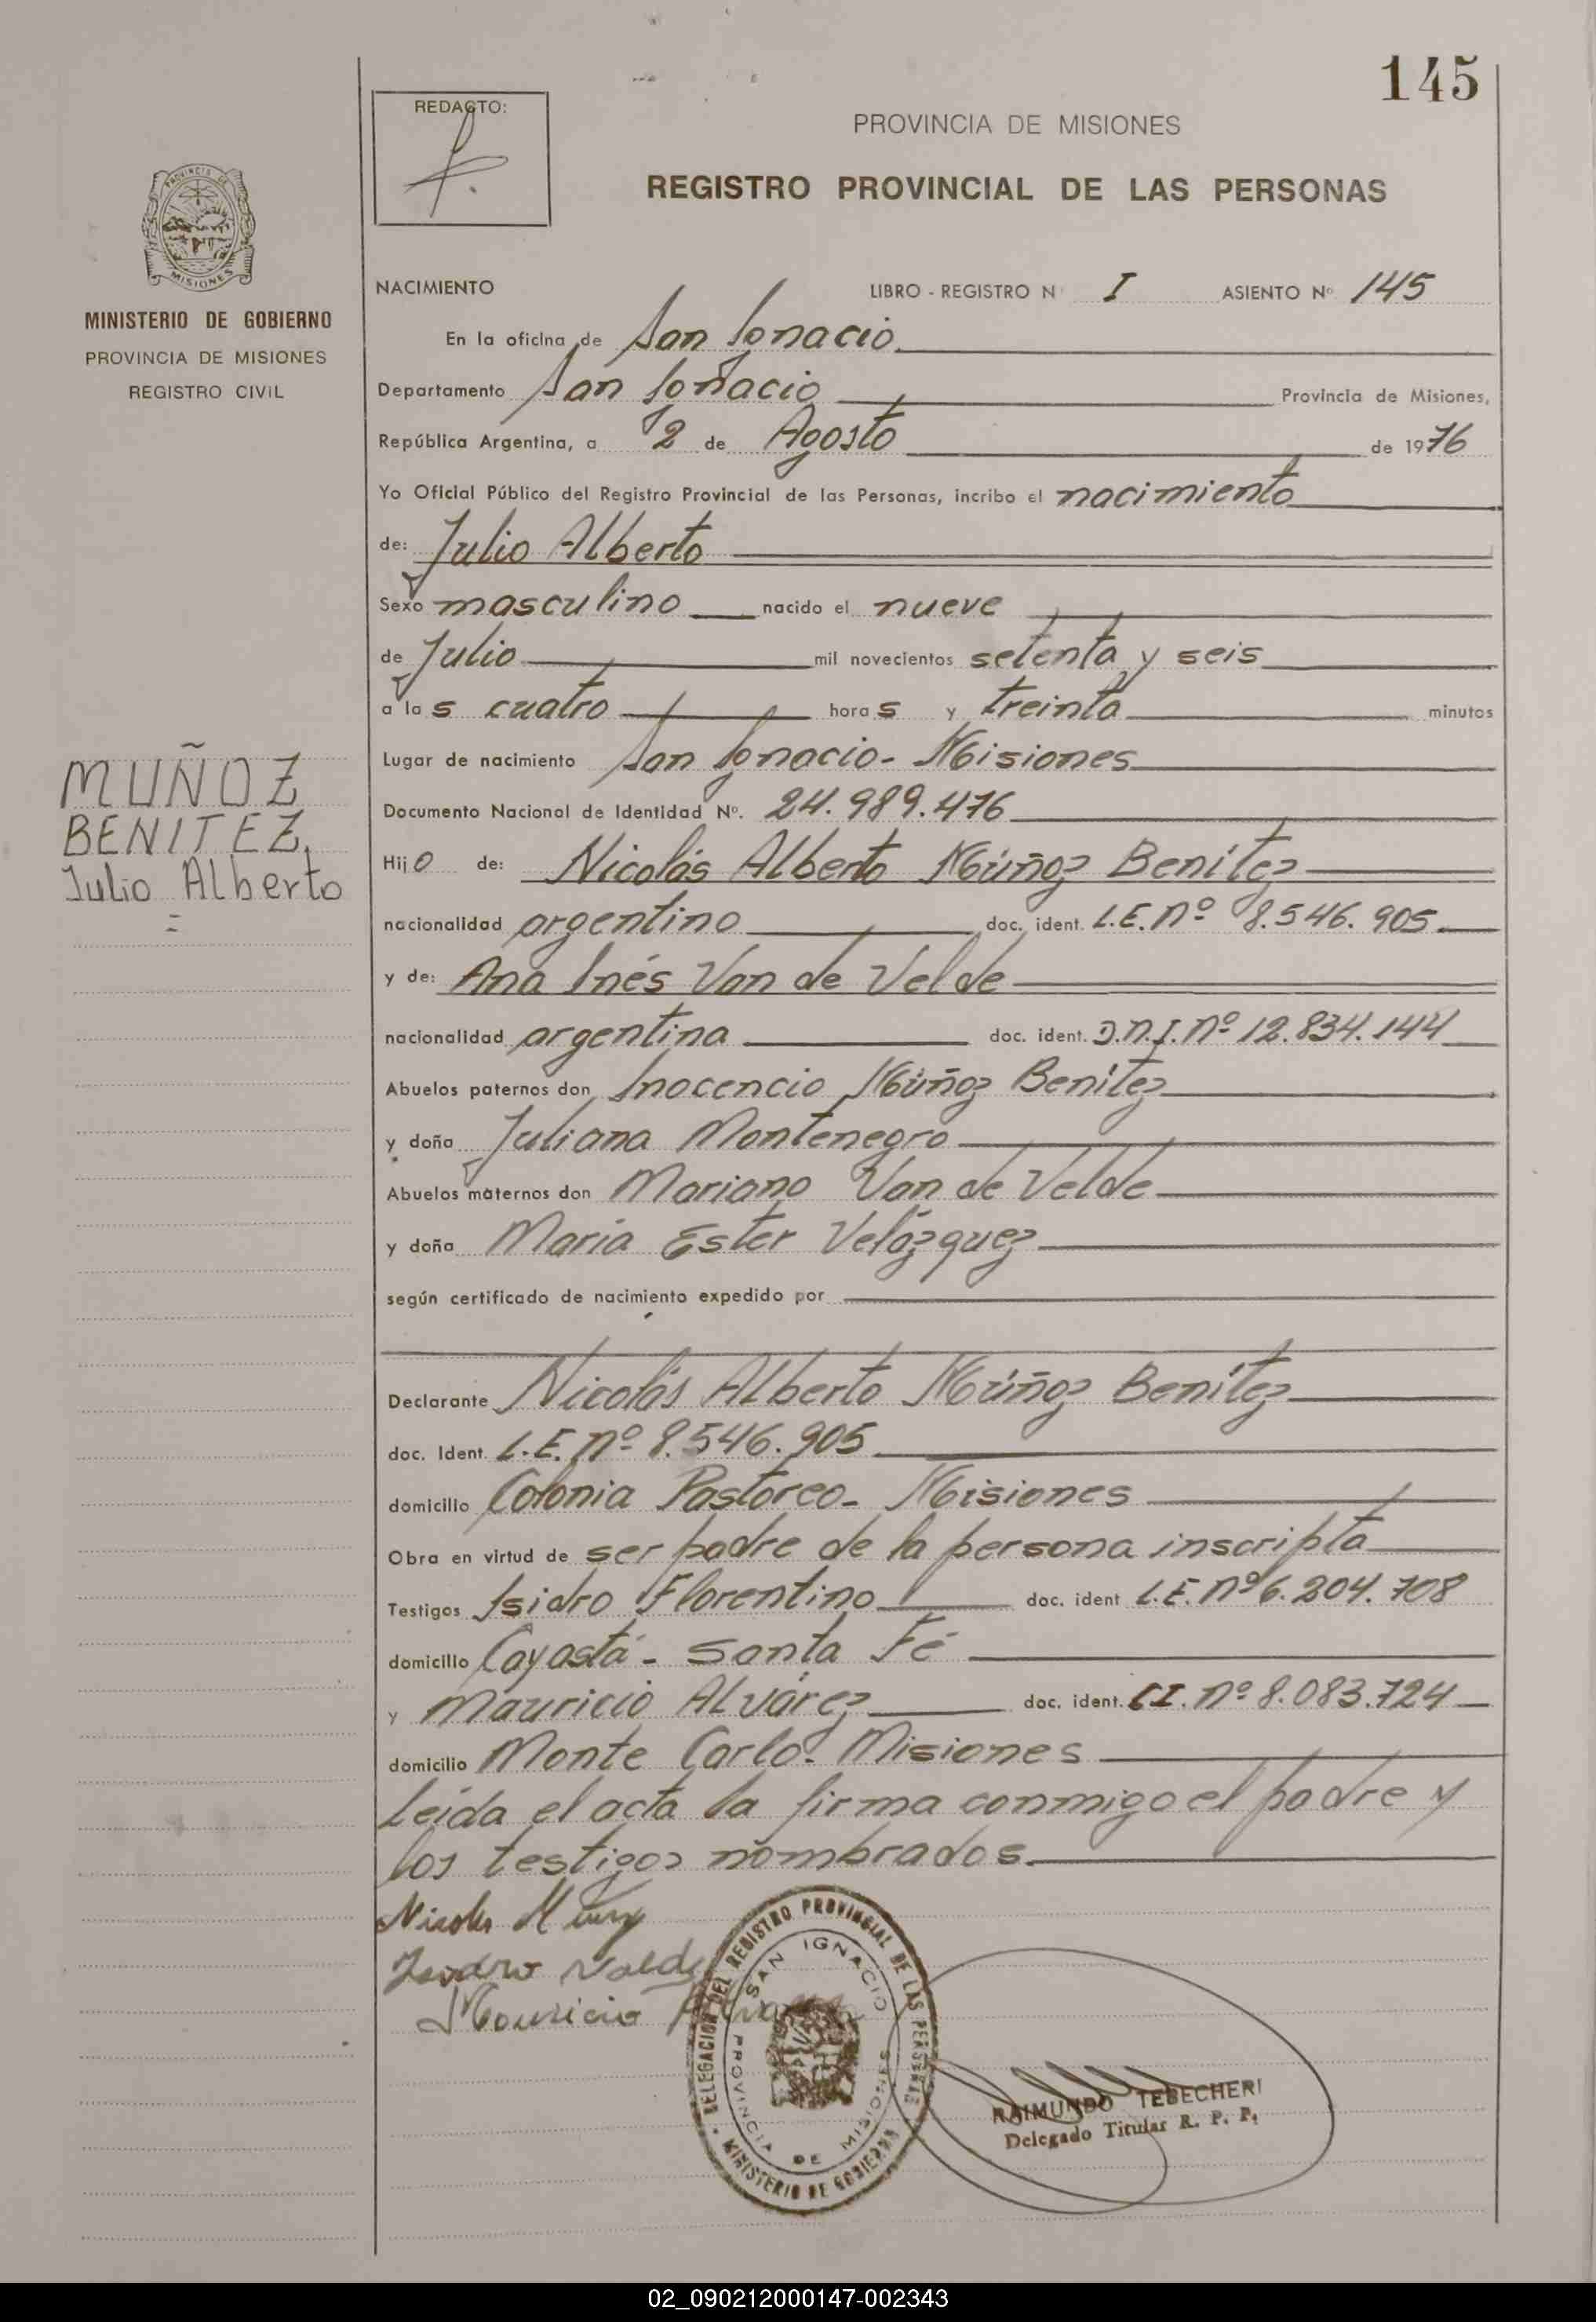 145
REDACTO:
PROVINCIA DE MISIONES
REGISTRO PROVINCIAL DE LAS PERSONAS
PROVINCIA DE
MISIONES
MINISTERIO DE GOBIERNO
PROVINCIA DE MISIONES
REGISTRO CIVIL
NACIMIENTO LIBRO - REGISTRO Nº I ASIENTO Nº 145
En la oficina de San Ignacio
Departamento San Ignacio Provincia de Misiones,
República Argentina, a 2 de Agosto de 1976
Yo Oficial Público del Registro Provincial de las Personas, incribo el nacimiento
de: Julio Alberto
Sexo masculino nacido el nueve
de Julio mil novecientos setenta y seis
a las cuatro horas y treinta minutos
Lugar de nacimiento San Ignacio - Misiones
Documento Nacional de Identidad Nº. 24.989.476
MUÑOZ
BENITEZ,
Julio Alberto
Hijo de: Nicolás Alberto Múñoz Benítez
nacionalidad argentino doc. ident. L.E. nº 8.546.905
y de: Ana Inés Van de Velde
nacionalidad argentina doc. ident. D.N.I. nº 12.834.144
Abuelos paternos don Inocencio Múñoz Benítez
y doña Juliana Montenegro
Abuelos maternos don Mariano Van de Velde
y doña María Ester Velázquez
según certificado de nacimiento expedido por
Declarante Nicolás Alberto Múñoz Benítez
doc. Ident. L.E. nº 8.546.905
domicilio Colonia Pastoreo - Misiones
Obra en virtud de ser padre de la persona inscripta
Testigos Isidro Florentino doc. ident L.E. nº 6.204.708
domicilio Cayastá - Santa Fé
y Mauricio Alvárez doc. ident. C.I. nº 8.083.724
domicilio Monte Carlo - Misiones
Leída el acta la firma conmigo el padre y
los testigos nombrados.
Nicolás
Mauricio
DELEGACION DEL REGISTRO PROVINCIAL DE LAS PERSONAS
SAN IGNACIO
PROVINCIA DE MISIONES
MINISTERIO DE GOBIERNO
RAIMUNDO TEBECHERI
Delegado Titular R. P. P.
02_090212000147-002343